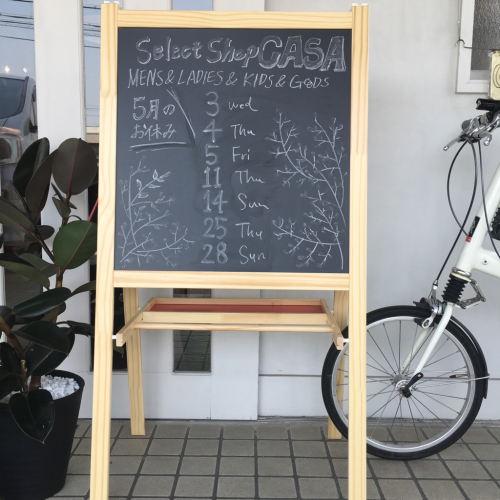 Select Shop CASA
MENS & LADIES & KIDS & GOODS
5月の
お休み
3 wed
4 Thu
5 Fri
11 Thu
14 Sun
25 Thu
28 Sun